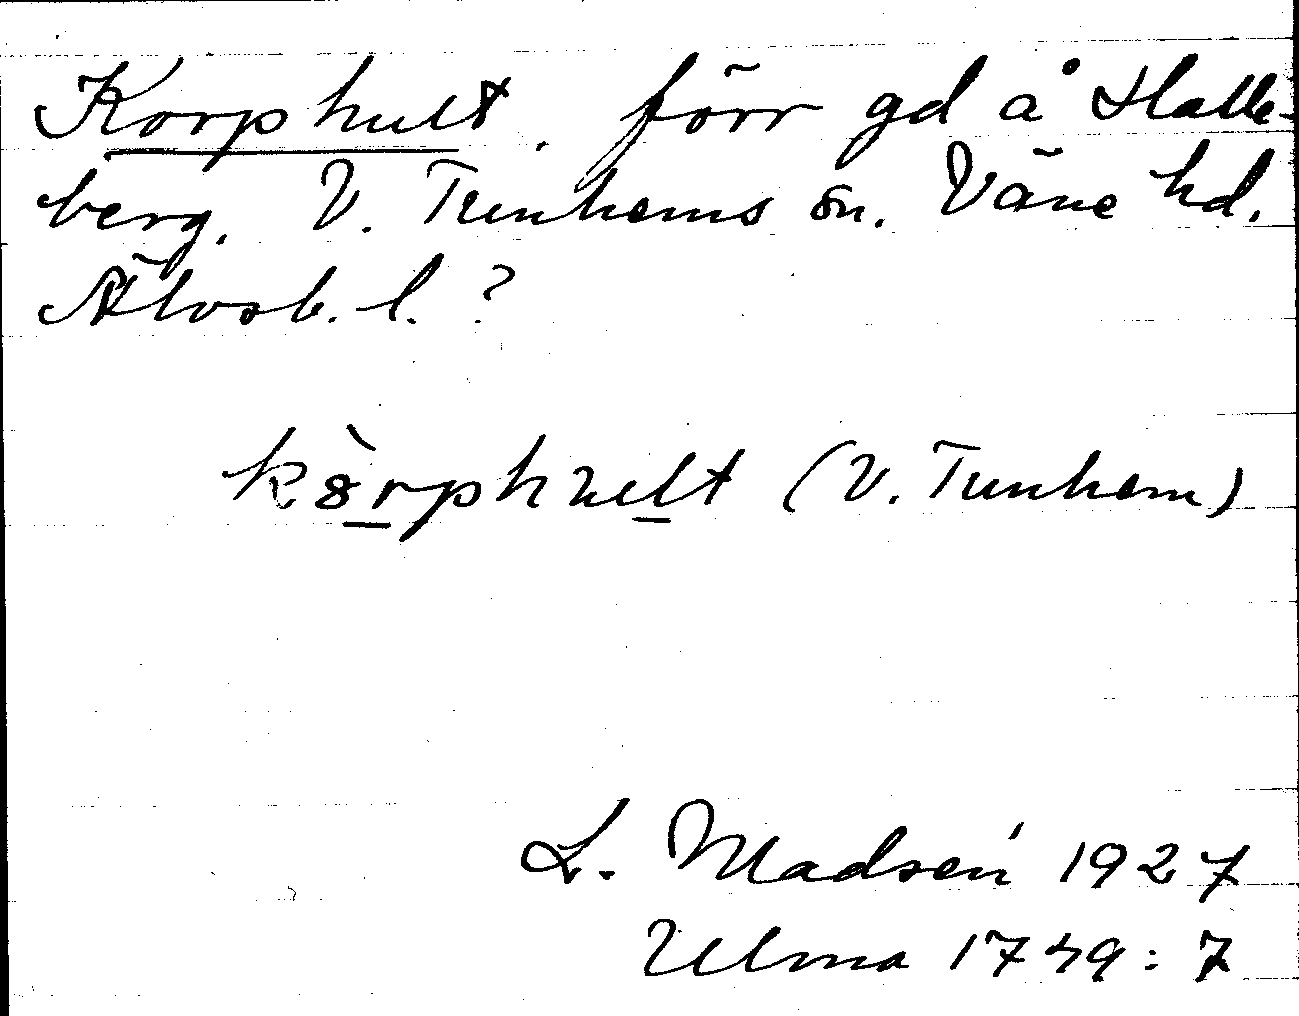 Korphult, förr gd å Halle-
berg. V. Tunhems sn. Väne hd.
Älvsb. l. ?
(V. Tunhem)
L. Madsén 1927
Ulma 1749 : 7